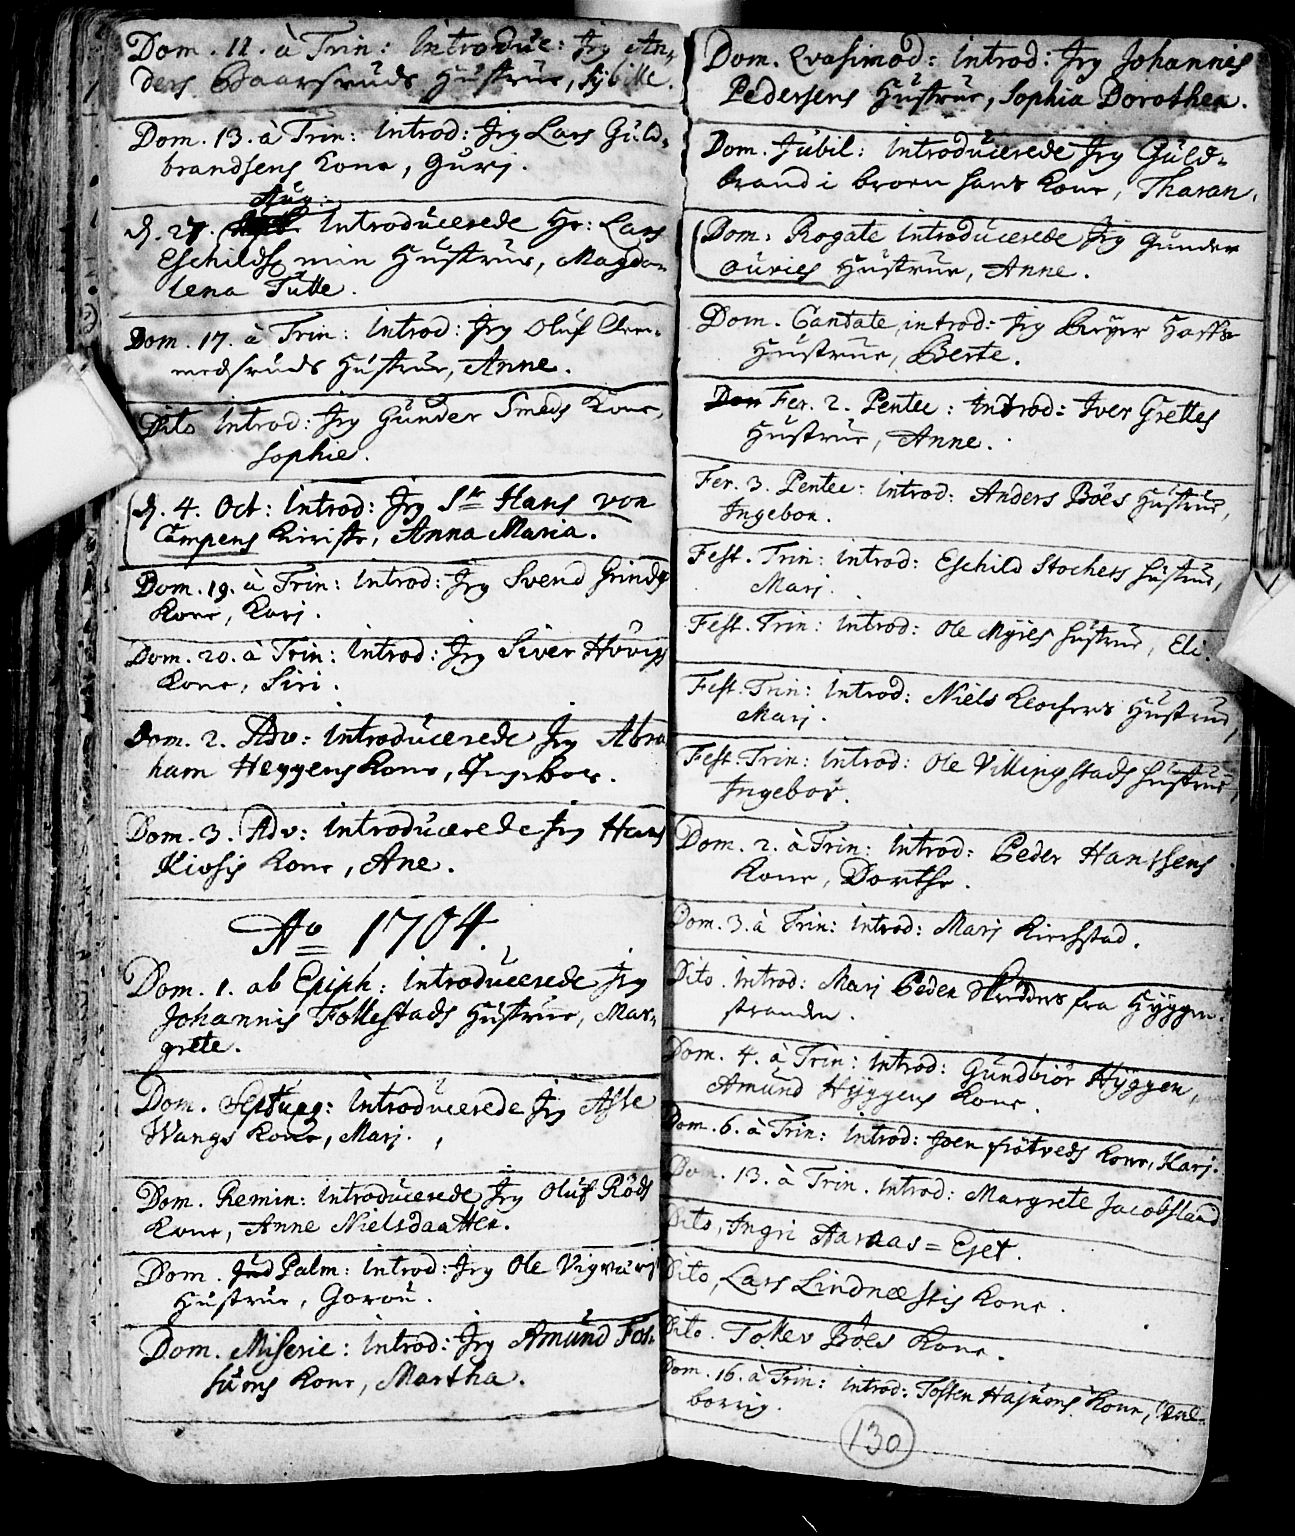 Dom. 11. à Trin: Introduc: Jeg An-
ders Baarsruds Hustrue, Sybille.
Dom. 13. à Trin: Introd: Jeg Lars Guld-
brandsens Kone, Gurj.
Aug:
d. 27. Introducerede Hr: Lars
Eschilds min Hustrue, Magda-
lena Tutte.
Dom. 17. à Trin: Introd: Jeg Oluf Clem-
medsruds Hustrue, Anne.
Dito Introd: Jeg Gunder Smeds Kone,
Sophie.
d. 4. Oct: Introd: Jeg Sr Hans von
Campens Kieriste, Anna Maria.
Dom. 19. à Trin: Introd: Jeg Svend Grinds
Kone, Karj.
Dom. 20. à Trin: Introd: Jeg Siver Hövigs
Kone, Siri.
Dom. 2. Adv: Introducerede Jeg Abra
ham Heggens Kone, Ingebor.
Dom. 3. Adv: Introducerede Jeg Hans
Kiosis Kone, Ane.
Ao 1704.
Dom. 1. ab Epiph: introducerede Jeg
Johannis Follestads Hustrue, Mar-
grete.
Dom. Septuag: Introducerede Jeg Asle
Wangs Kone, Marj.
Dom. Remin: Introducerede Jeg Oluf Röds
Kone, Anne Nielsdaatter.
Dom. Jud Palm: Introd: Jeg Ole Vigvarj
Hustrue, Gorou.
Dom. Miserie: Introd: Jeg Amund Fos-
suens Kone, Martha.
Dom. Qvasimod: Introd: Jeg Johannis
Pedersens Hustrue, Sophia Dorothea.
Dom. Jubil: Introducerede Jeg Guld-
brand i broen hans Kone, Tharan.
Dom: Rogate Introducerede Jeg Gunder
Ouries Hustrue, Anne.
Dom. Cantate, introd: Jeg Beryer Haffs
Hustrue, Berte.
Dom Fer. 2. Pentec: Introd: Iver Grettes
Hustrue, Anne.
Fer. 3. Pentec: Introd: Anders Böes Hustrue,
Ingebor.
Fest. Trin: Introd: Eschild Stochers Hustrue,
Marj.
Fest. Trin: Introd: Ole Myres Hustrue, Eli.
Fest. Trin: Introd: Niels Klochers Hustrue,
Marj.
Fest. Trin: Introd: Ole Villingstads Hustrue,
Ingebor.
Dom. 2. à Trin: Introd: Peder Hanssens
Kone, Dorthe.
Dom. 3. à Trin: Introd: Marj Kirchstad.
Dito. Introd: Marj Peder Skredders fra Hyggen-
stranden.
Dom. 4. à Trin: Introd: Gundbiör Hyggen,
Amund Hyggens Kone.
Dom. 6. à Trin: Introd: Joen frötveds Kone, Karj.
Dom. 13. à Trin. Introd: Margrete Jacobsland
Dito, Ingri Aaraas=Eyet.
Dito, Lars Lindnæstis Kone.
Dito. Tollev Böes Kone.
Dom. 16. à Trin: Introd: Tosten Hajuens Kone, Val-
borrig.
130